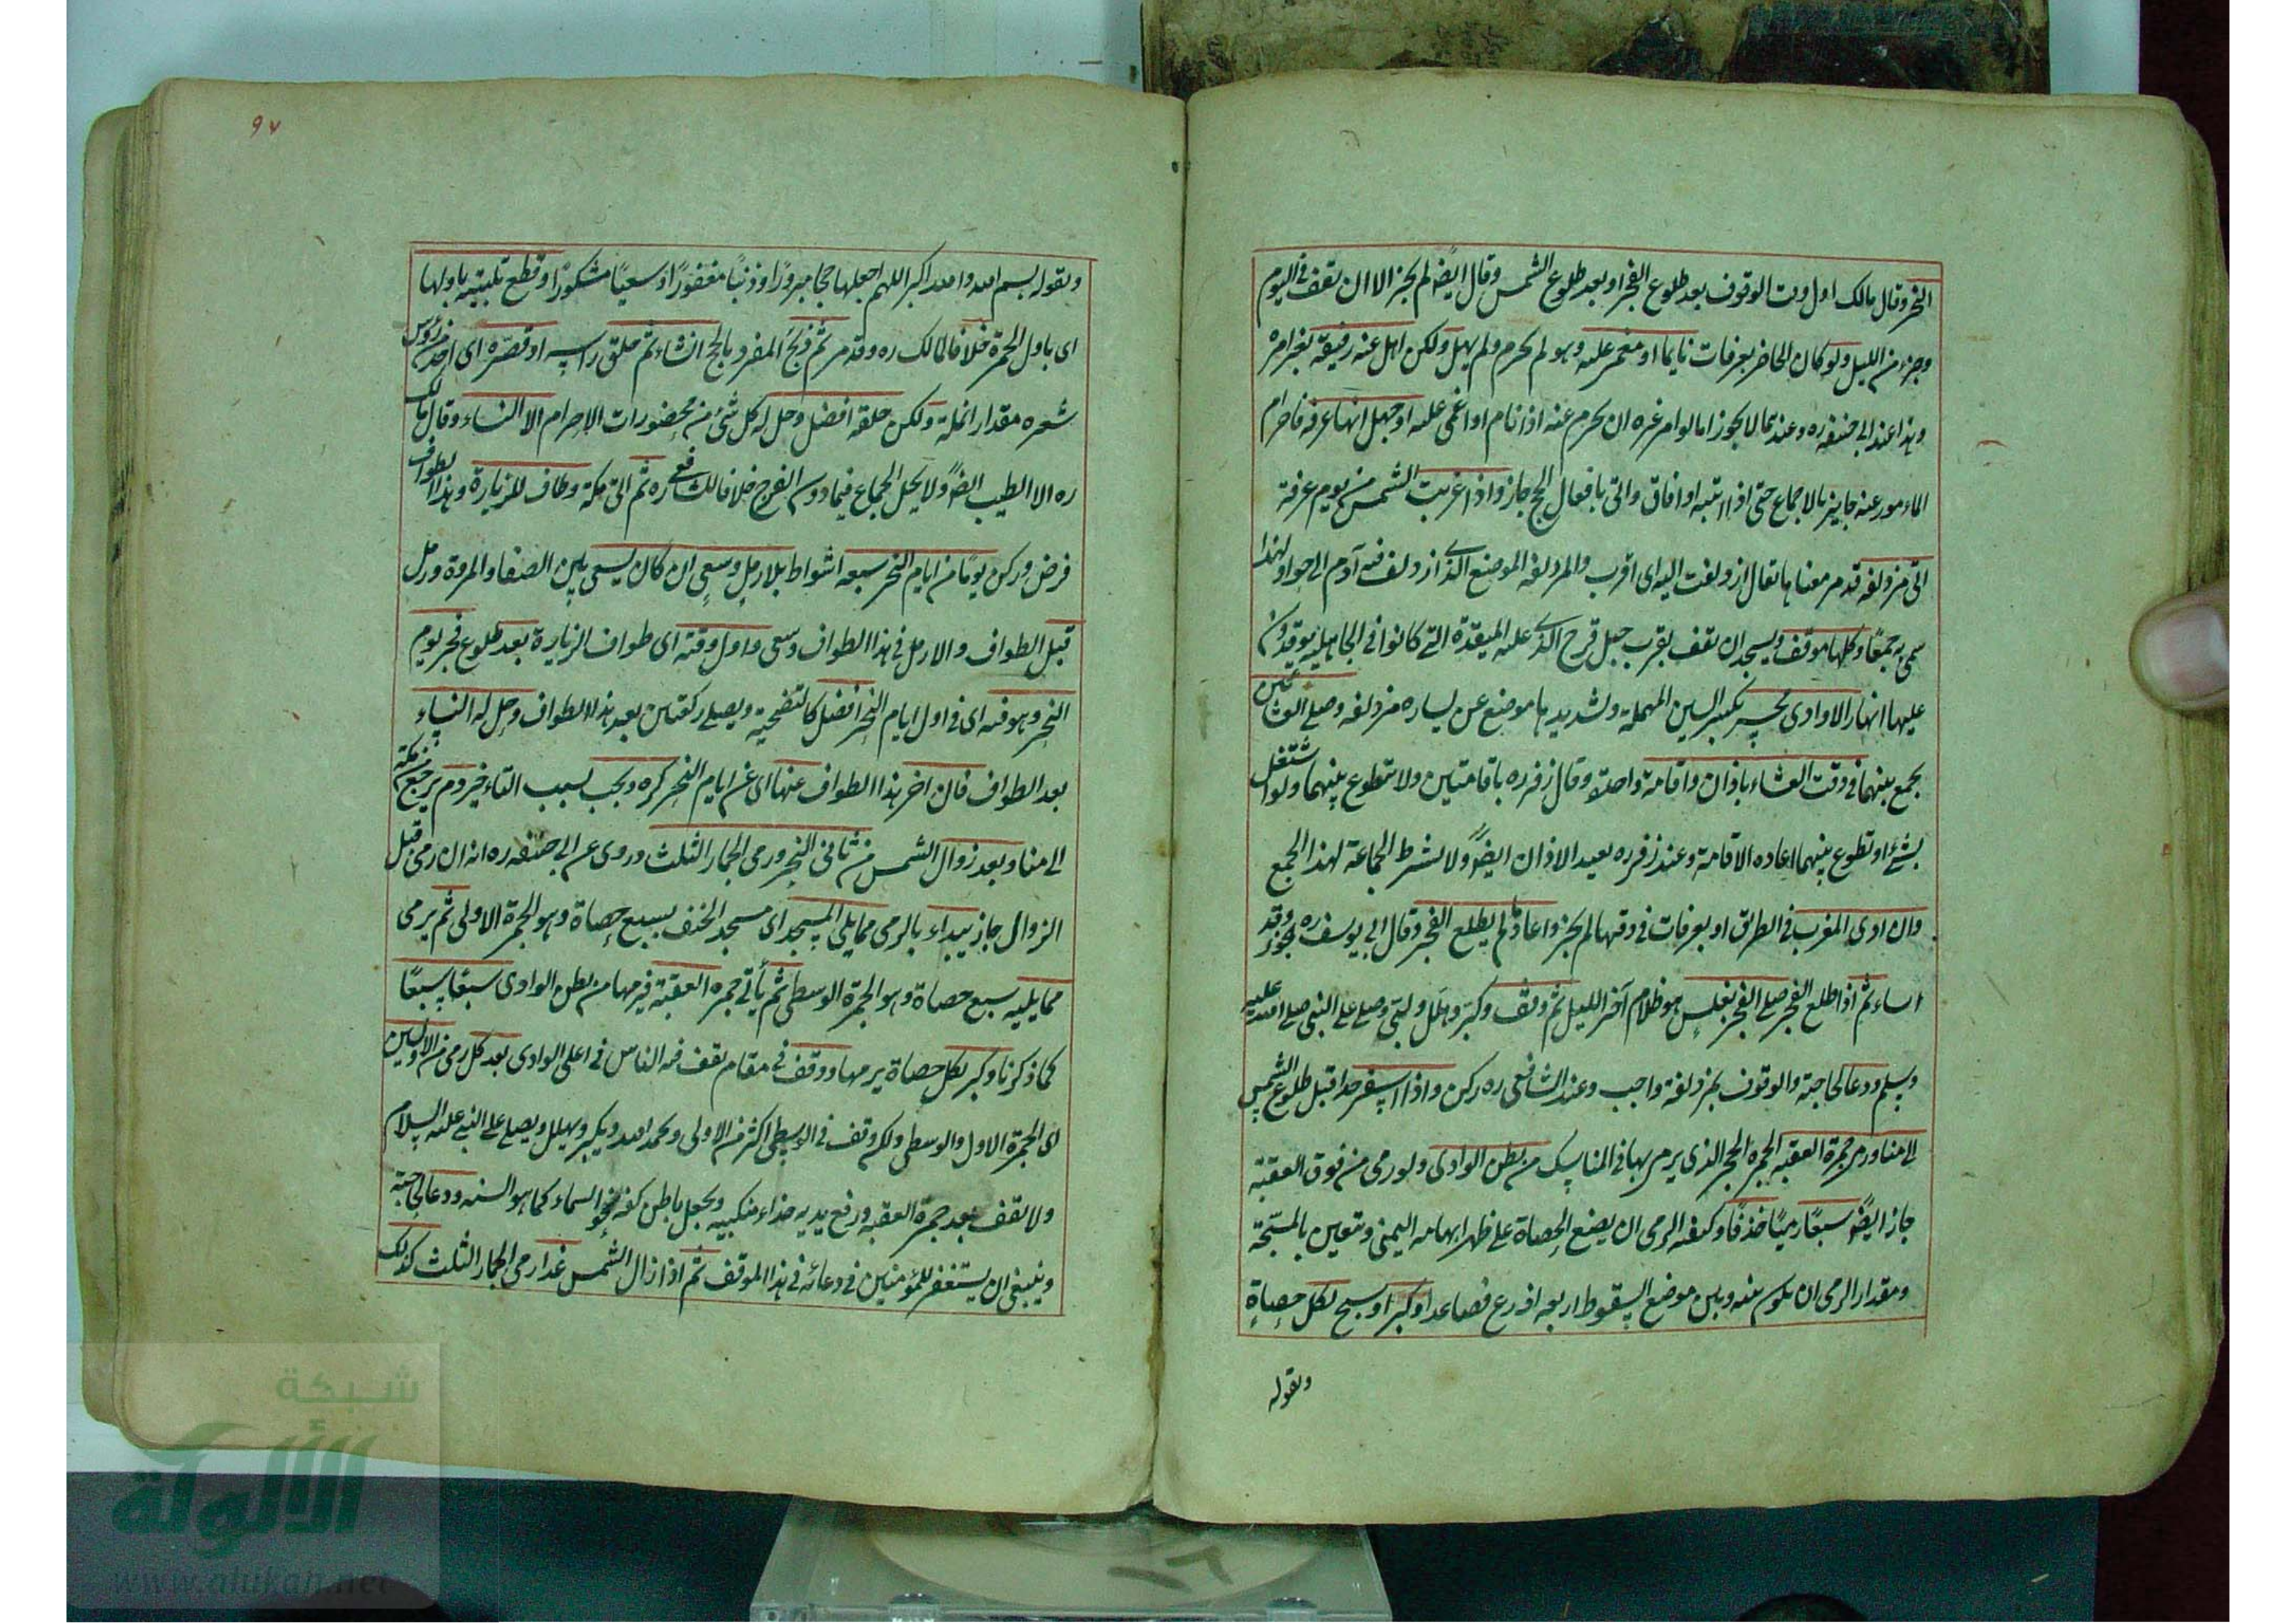 النحر وقال مالك اول وقت الوقوف بعد طلوع الفجر او بعد طلوع الشمس وقال ايضًا لم يجز الا ان يقف في اليوم
وجزء من الليل ولو كان الحاضر بعرفات نايما او مغمى عليه وهو لم يحرم ولم يهل ولكن اهل عنه رفيقه بغير امره
وهذا عند ابي حنيفه ره وعندهما لا يجوز اما لو امر غيره ان يحرم عنه اذا نام او اغمى عليه او جهل انها عرفه فاحرام
المامور عنه جايز بالاجماع حتى اذا انتبه او افاق واتى بافعال الحج جاز واذا غربت الشمس من يوم عرفة
اتى مزدلفه قد مر معناها يقال ازدلفت اليه اى اقرب والمزدلفه الموضع الذى ازدلف فيه آدم الى حوا ولهذا
سمى به جمعًا وكلها موقف ويستحب ان يقف بقرب جبل قزح الذى عليه الميقدة التى كانوا في الجاهلية يوقدون
عليها النار الا وادى محسر بكسر السين المهملة وتشديدها موضع عن يساره مزدلفه وصلى العشائين
يجمع بينهما في وقت العشاء باذان واقامة واحدة وقال زفر ره باقامتين ولا تطوع بينهما ولو اشتغل
بشئ او تطوع بينهما اعاده الاقامة وعند زفر ره يعيد الاذان ايضًا ولا يشترط الجماعة لهذا الجمع
وان ادى المغرب في الطريق او بعرفات في وقتها لم يجز واعاد ما لم يطلع الفجر وقال ابى يوسف ره يجوز وقد
اساء ثم اذا طلع الفجر صلى الفجر بغلس هو ظلام آخر الليل ثم وقف وكبر وهلل ولبى وصلى على النبي صلى الله عليه
وسلم ودعا لحاجته والوقوف بمزدلفة واجب وعند الشافعى ره ركن واذا اسفر جدا قبل طلوع الشمس
الى منا ورمى جمرة العقبه الجمره الحجر الذى يرمى بها في المناسك من بطن الوادى ولو رمى من فوق العقبة
جاز ايضًا سبعًا رميًا خذفًا وكيفيه الرمى ان يضع الحصاة على ظهر ابهامه اليمنى ويستعين بالمسبحة
ومقدار الرمى ان يكون بينه وبين موضع السقوط اربعه اذرع فصاعدا وكبر او سبح لكل حصاةٍ
ويقوله
٩٧
ويقوله بسم الله والله اكبر اللهم اجعلها حجا مبرورًا وذنبًا مغفورًا وسعيًا مشكورًا وقطع تلبيته باولها
اى باول الجمرة خلافا لمالك ره وقد مر ثم ذبح المفرد بالحج ان شاء ثم حلق راسه او قصره اى اخذ من رؤس
شعره مقدار انملة ولكن حلقه افضل وحل له كل شئ من محضورات الاحرام الا النساء وقال مالك
ره الا الطيب ايضًا ولا يحل الجماع فيما دون الفرج خلافا للشافعى ره ثم اتى مكة وطاف للزيارة وهذا الطواف
فرض وركن يومًا من ايام النحر سبعه اشواط بلا رمل وسعى ان كان يسعى بين الصفا والمروة ورمل
قبل الطواف والا رمل في هذا الطواف وسعى واول وقته اى طواف الزيارة بعد طلوع فجر يوم
النحر وهو فيه اى في اول ايام النحر افضل كالتضحية ويصلى ركعتين بعد هذا الطواف وحل له النساء
بعد الطواف فان اخر هذا الطواف عنها اى عن ايام النحر كره ويجب بسبب التاخير دم ثم يرجع من مكة
الى منا وبعد زوال الشمس من ثانى النحر ورمى الجمار الثلث وروى عن ابى حنيفه ره انه ان رمى قبل
الزوال جاز يبداء بالرمى مما يلى المسجد اى مسجد الخيف بسبع حصاة وهو الجمرة الاولى ثم يرمى
مما يليه سبع حصاة وهو الجمرة الوسطى ثم يأتى جمره العقبة فيرميها من بطن الوادى سبعًا سبعًا
كما ذكرنا وكبر بكل حصاة يرميها ووقف في مقام يقف فيه الناس في اعلى الوادى بعد كل رمى من الاوليين
اى الجمرة الاول والوسطى ولكن وقف في الوسطى اكثر من الاولى ويحمد الله ويكبر ويهلل ويصلى على النبى عليه السلام
ولا يقف بعد جمرة العقبه ورفع يديه حذاء منكبيه ويجعل باطن كفه نحو السماء كما هو السنه ودعا لحاجته
وينبغى ان يستغفر للمؤمنين في دعائه في هذا الموقف ثم اذا زال الشمس غدا رمى الجمار الثلث كذلك
شبكة
الألوكة
www.alukah.net